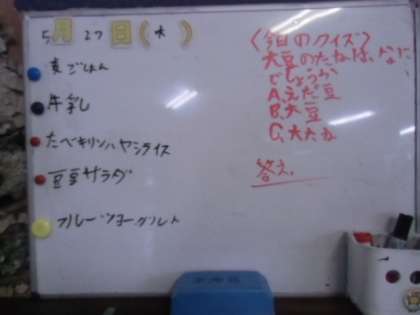 5月27日(火)
麦ごはん
牛乳
たべキリンハヤシライス
豆豆サラダ
フルーツヨーグルト
〈今日のクイズ〉
大豆のたねは、なに
でしょうか
A、えだ豆
B、大豆
C、大たね
答え、